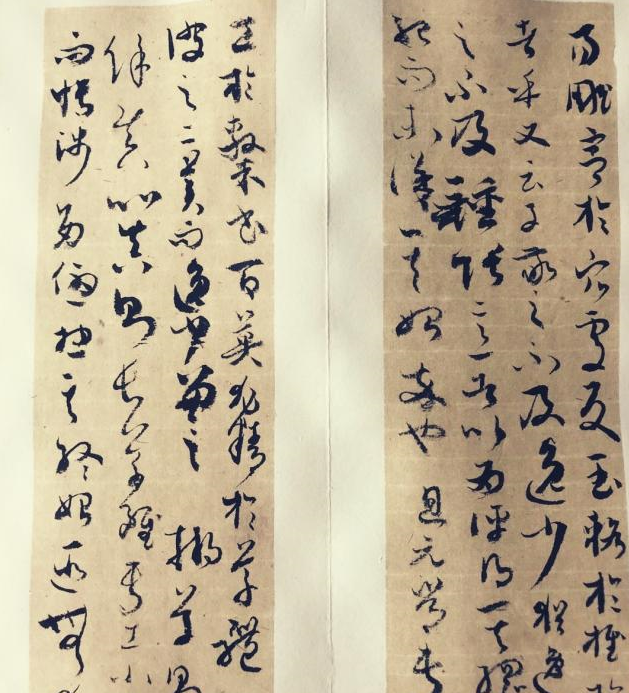 易雕宮於穴處反玉輅於椎
者乎又云子敬之不及逸少猶逸
之不及鍾張意者以為評得其綱
紀而未詳其始卒也且元常專
工於隸書百英尤精於草體
彼之二美而逸少兼之擬草則
餘真比真則長草雖專工小
而博涉多優揔其終始匪無